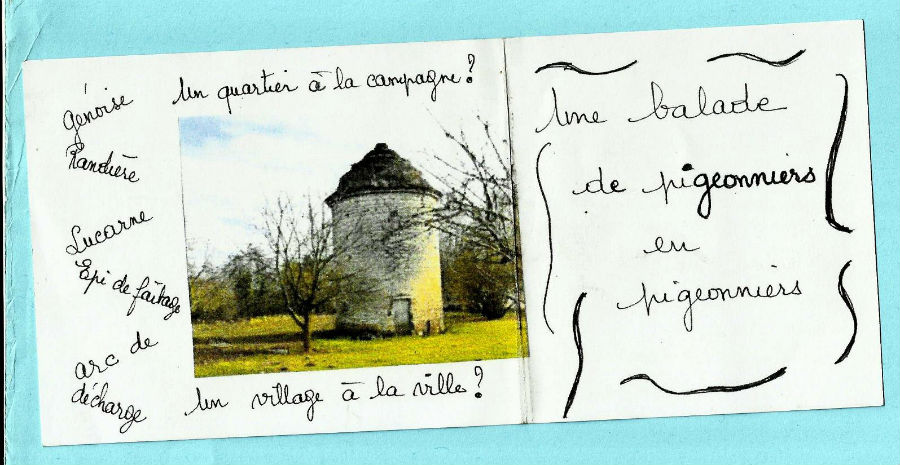 Un quartier à la campagne?
génoise
Randière
Lucarne
Épi de faîtage
arc de
décharge
Un village à la ville?
Une balade
de pigeonniers
en
pigeonniers